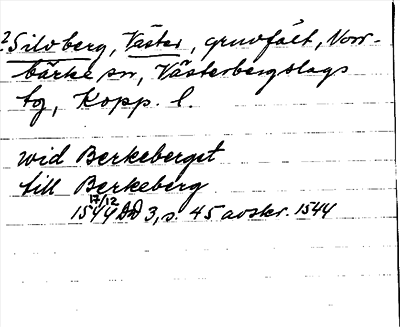 ?Silvberg, Väster, gruvfält, Norr-
bärke sn, Västerbergslags
tg, Kopp. l.
wid Berkeberget
till Berkeberg
17/12
1544 DD 3, s. 45 avskr. 1544